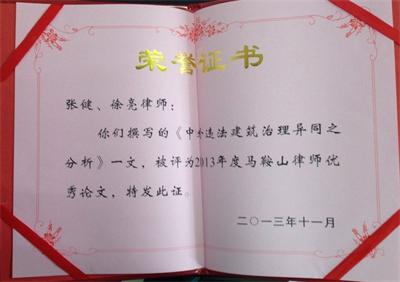 荣誉证书
张健、徐亮律师：
你们撰写的《中外违法建筑治理异同之
分析》一文，被评为2013年度马鞍山律师优
秀论文，特发此证。
二〇一三年十一月